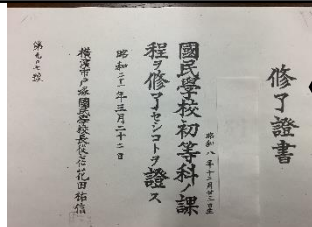 修了證書
昭和八年十二月廿三日生
國民學校初等科ノ課
程ヲ修了セシコトヲ證ス
昭和二十一年三月二十二日
横濱市戸塚國民學校長從七位花田祐信
第九〇七號